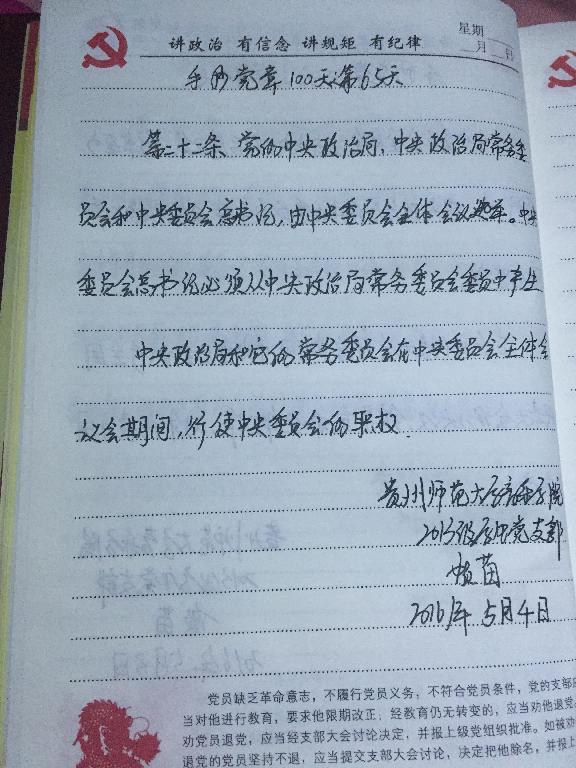 星期
月 日
讲政治 有信念 讲规矩 有纪律
手抄党章100天第65天
第二十二条、党的中央政治局、中央政治局常务委
员会和中央委员会总书记，由中央委员会全体会议选举。中央
委员会总书记必须从中央政治局常务委员会委员中产生
中央政治局和它的常务委员会在中央委员会全体会
议会期间，行使中央委员会的职权.
贵州师范大学 学院
2015级 党支部
苗
2016年5月4日
党员缺乏革命意志，不履行党员义务，不符合党员条件，党的支部应
当对他进行教育，要求他限期改正；经教育仍无转变的，应当劝他退党。
劝党员退党，应当经支部大会讨论决定，并报上级党组织批准。如被劝
退党的党员坚持不退，应当提交支部大会讨论，决定把他除名，并报上